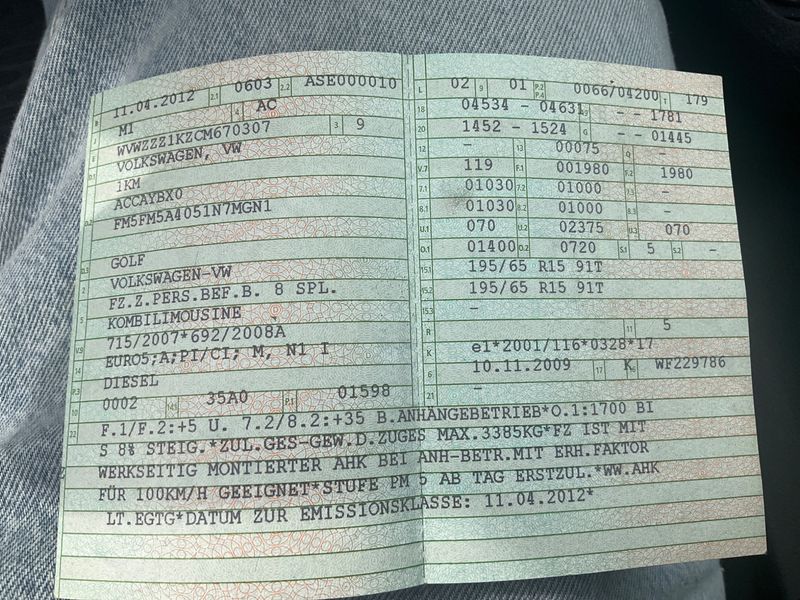 B 11.04.2012 2.1 0603 2.2 ASE000010
J M1 4 AC
E WVWZZZ1KZCM670307 3 9
D.1 VOLKSWAGEN, VW
1KM
D.2 ACCAYBX0
FM5FM5A4051N7MGN1
D.3 GOLF
2 VOLKSWAGEN-VW
FZ.Z.PERS.BEF.B. 8 SPL.
5 KOMBILIMOUSINE
V.9 715/2007*692/2008A
EURO5;A;PI/CI; M, N1 I
P.3 DIESEL
10 0002 14.1 35A0 P.1 01598
L 02 9 01 P.2 P.4 0066/04200 T 179
18 04534 - 04631 19 - - 1781
20 1452 - 1524 G - - 01445
12 - 13 00075 Q -
V.7 119 F.1 001980 F.2 1980
7.1 01030 7.2 01000 7.3 -
8.1 01030 8.2 01000 8.3 -
U.1 070 U.2 02375 U.3 070
O.1 01400 O.2 0720 S.1 5 S.2 -
15.1 195/65 R15 91T
15.2 195/65 R15 91T
15.3 -
R 11 5
K e1*2001/116*0328*17
6 10.11.2009 17 K 16 WF229786
21 -
22 F.1/F.2:+5 U. 7.2/8.2:+35 B.ANHÄNGEBETRIEB*O.1:1700 BI
S 8% STEIG.*ZUL.GES-GEW.D.ZUGES MAX.3385KG*FZ IST MIT
WERKSEITIG MONTIERTER AHK BEI ANH-BETR.MIT ERH.FAKTOR
FÜR 100KM/H GEEIGNET*STUFE PM 5 AB TAG ERSTZUL.*WW.AHK
LT.EGTG*DATUM ZUR EMISSIONSKLASSE: 11.04.2012*